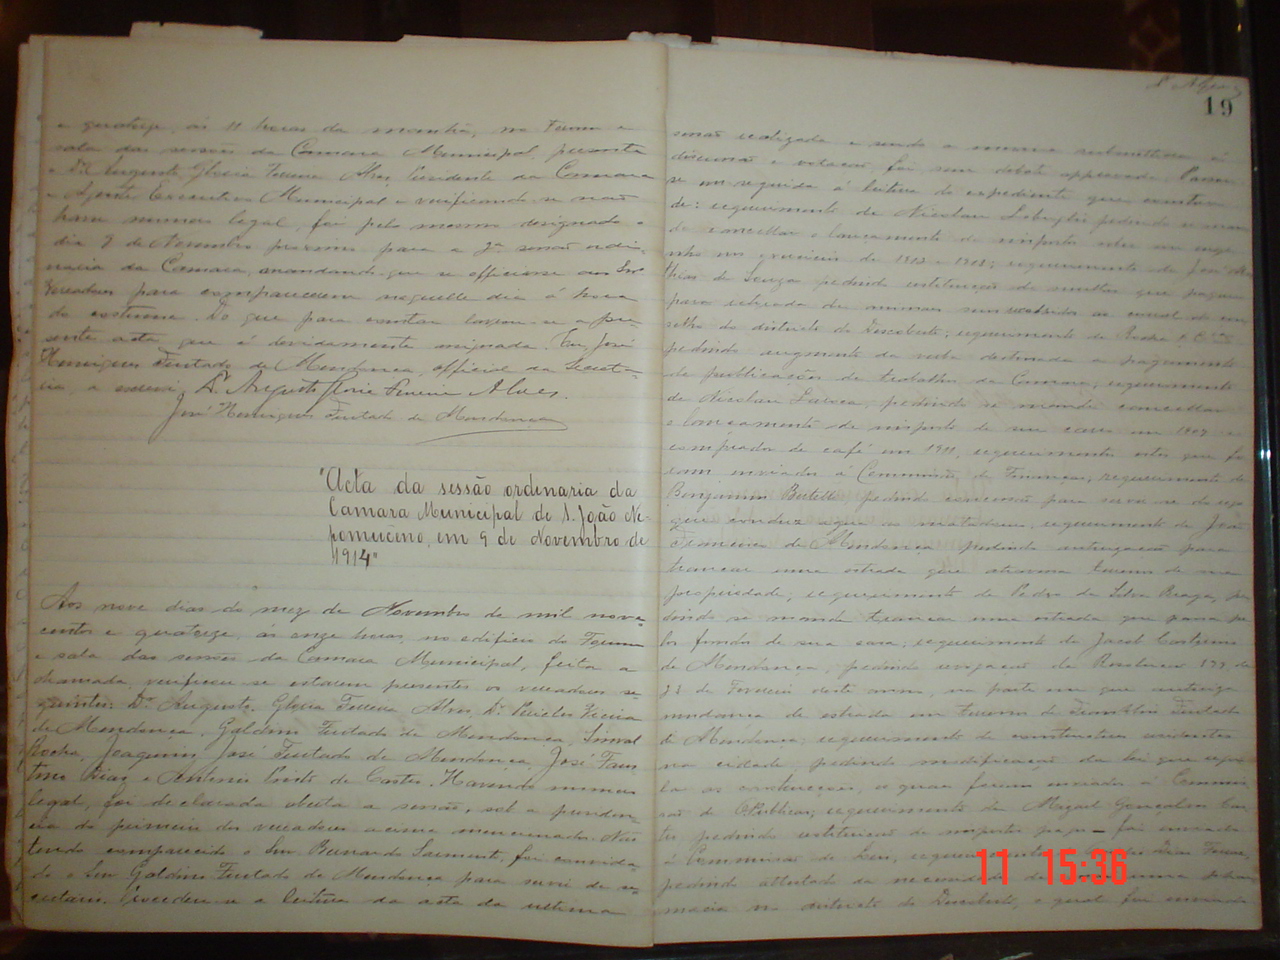 e quatorze, ás 11 horas da manhã, no Forum e
sala das sessões da Camara Municipal, presente
o Dr. Augusto Gloria Ferreira Alves, Presidente da Camara
e Agente Executivo Municipal e verificando-se não
haver numero legal, foi pelo mesmo designado o
dia 9 de Novembro proximo para a sessão ordi-
naria da Camara, mandando que se officiasse aos Srs.
Vereadores para comparecerem naquelle dia á hora
do costume. Do que para constar lavrou-se a pre-
sente acta que é devidamente assignada. Eu, José
Henriques Furtado de Mendonça, official da Secreta-
ria, a escrevi. Dr. Augusto Gloria Ferreira Alves.
José Henriques Furtado de Mendonça
"Acta da sessão ordenaria da
Camara Municipal de S. João Ne-
pomuceno, em 9 de Novembro de
1914"
Aos nove dias do mez de Novembro de mil nove-
centos e quatorze, ás onze horas, no edificio do Forum
e sala das sessões da Camara Municipal, feita a
chamada, verificou-se estarem presentes os vereadores se-
guintes: Dr. Augusto Gloria Ferreira Alves, Dr. Pericles Vieira
de Mendonça, Galdino Furtado de Mendonça, Sinval
Rocha, Joaquim José Furtado de Mendonça, José Faus-
tino Dias e Antonio de Castro. Havendo numero
legal, foi declarada aberta a sessão, sob a presiden-
cia do primeiro dos vereadores acima mencionados. Não
tendo comparecido o Snr. Bernardo Sarmento, foi convida-
do o Snr. Galdino Furtado de Mendonça para servir de se-
cretario. Procedeu-se a leitura da acta da ultima
19
sessão realizada e sendo a mesma submettida á
discussão e votação, foi sem debate approvada. Passou-
se em seguida á leitura do expediente que constou
de: requerimento de Nicolau pedindo se man-
de cancellar o lançamento de imposto sobre um nego-
cio nos exercicios de 1912 e 1913; requerimento de José
de Souza pedindo restituição de multas que pagou
para retirada de animaes seus recolhidos ao curral do con-
selho do districto do Descoberto; requerimento de Rocha & Cia
pedindo augmento da verba destinada a pagamento
de publicação de trabalhos da Camara; requerimento
de Nicolau pedindo se mande cancellar
o lançamento de imposto de sua casa em 1909 e
comprador de café em 1911, requerimentos estes que fo-
ram enviados á Commissão de Finanças; requerimento de
Benjamim Botelho pedindo concessão para servir-se do rego
que conduz agua ao matadouro; requerimento de José
Francisco de Mendonça pedindo autorização para
trancar uma estrada que atravessa terreno de sua
propriedade; requerimento de Pedro da Silva Braga, pe-
dindo se mande trancar uma estrada que passa pe-
los fundos de sua casa; requerimento de Jacob
de Mendonça, pedindo revogação da Resolução 177, de
21 de Fevereiro deste anno, na parte em que autoriza
mudança de estrada em terrenos de Franklin Furtado
de Mendonça; requerimento de constructores residentes
na cidade pedindo modificação da lei que regu-
la as construcções, os quaes foram enviados a Commis-
são de O. Publicas; requerimento de Miguel Gonçalves
pedindo restituição de imposto pago — foi enviado
á Commissão de Leis, requerimento de Dias
pedindo attestado da necessidade de uma phar-
macia no districto do Descoberto, o qual foi enviado
11 15:36